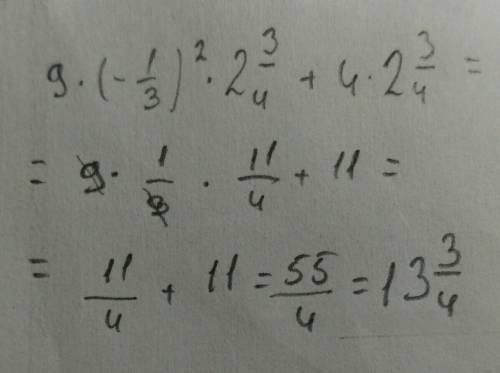 9 · (- 1/3)² · 2 3/4 + 4 · 2 3/4 =
= 9 · 1/9 · 11/4 + 11 =
= 11/4 + 11 = 55/4 = 13 3/4